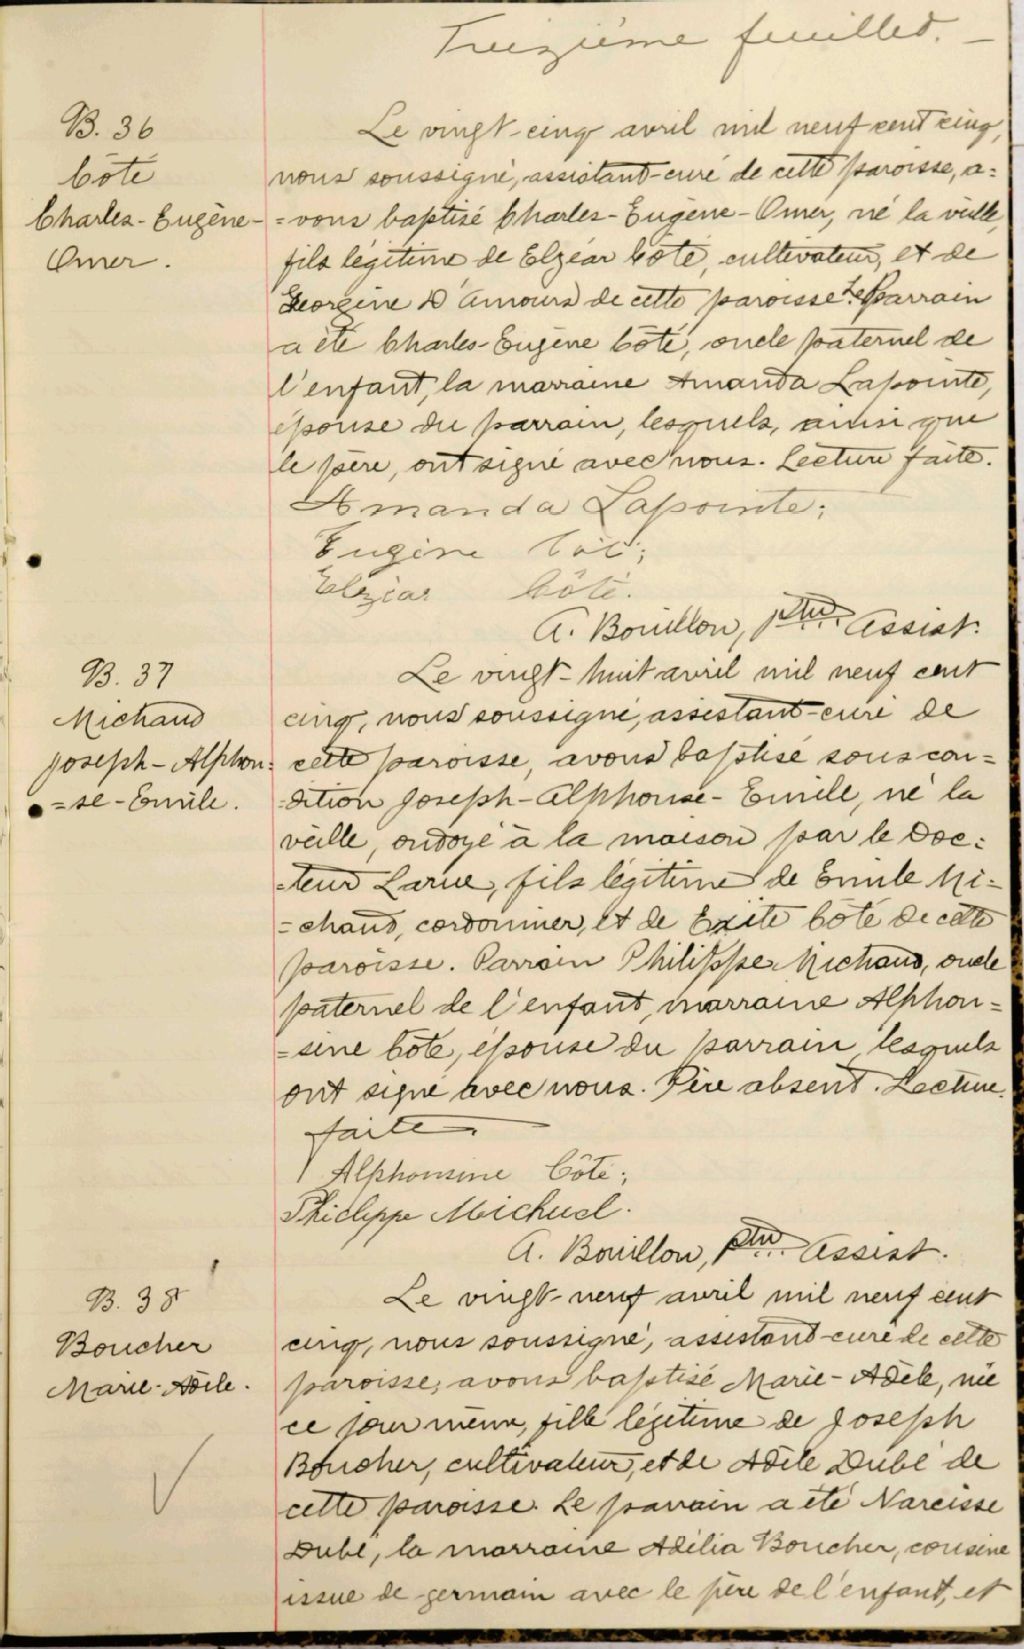 Treizième feuillet.
B. 36
Côté
Charles-Eugène-
Omer.
Le vingt-cinq avril mil neuf cent cinq,
nous soussigné, assistant-curé de cette paroisse, a=
=vons baptisé Charles-Eugène-Omer, né la veille,
fils légitime de Elzéar Côté, cultivateur, et de
Georgine D'Amours de cette paroisse. Le parrain
a été Charles-Eugène Côté, oncle paternel de
l'enfant, la marraine Amanda Lapointe,
épouse du parrain, lesquels, ainsi que
le père, ont signé avec nous. Lecture faite.
Amanda Lapointe;
Eugène Côté;
Elzéar Côté.
A. Bouillon, ptre Assist.
B. 37
Michaud
Joseph-Alphon=
=se-Emile.
Le vingt-huit avril mil neuf cent
cinq, nous soussigné, assistant-curé de
cette paroisse, avons baptisé sous con=
dition Joseph-Alphonse-Emile, né la
veille, ondoyé à la maison par le Doc=
=teur Larue, fils légitime de Emile Mi=
=chaud, cordonnier, et de Exite Côté de cette
paroisse. Parrain Philippe Michaud, oncle
paternel de l'enfant, marraine Alphon=
=sine Côté, épouse du parrain, lesquels
ont signé avec nous. Père absent. Lecture
faite.
Alphonsine Côté;
Philippe Michud.
A. Bouillon, ptre Assist.
B. 38
Boucher
Marie-Adèle.
Le vingt-neuf avril mil neuf cent
cinq, nous soussigné, assistant-curé de cette
paroisse, avons baptisé Marie-Adèle, née
ce jour même, fille légitime de Joseph
Boucher, cultivateur, et de Adèle Dubé de
cette paroisse. Le parrain a été Narcisse
Dubé, la marraine Adélia Boucher, cousine
issue de germain avec le père de l'enfant, et